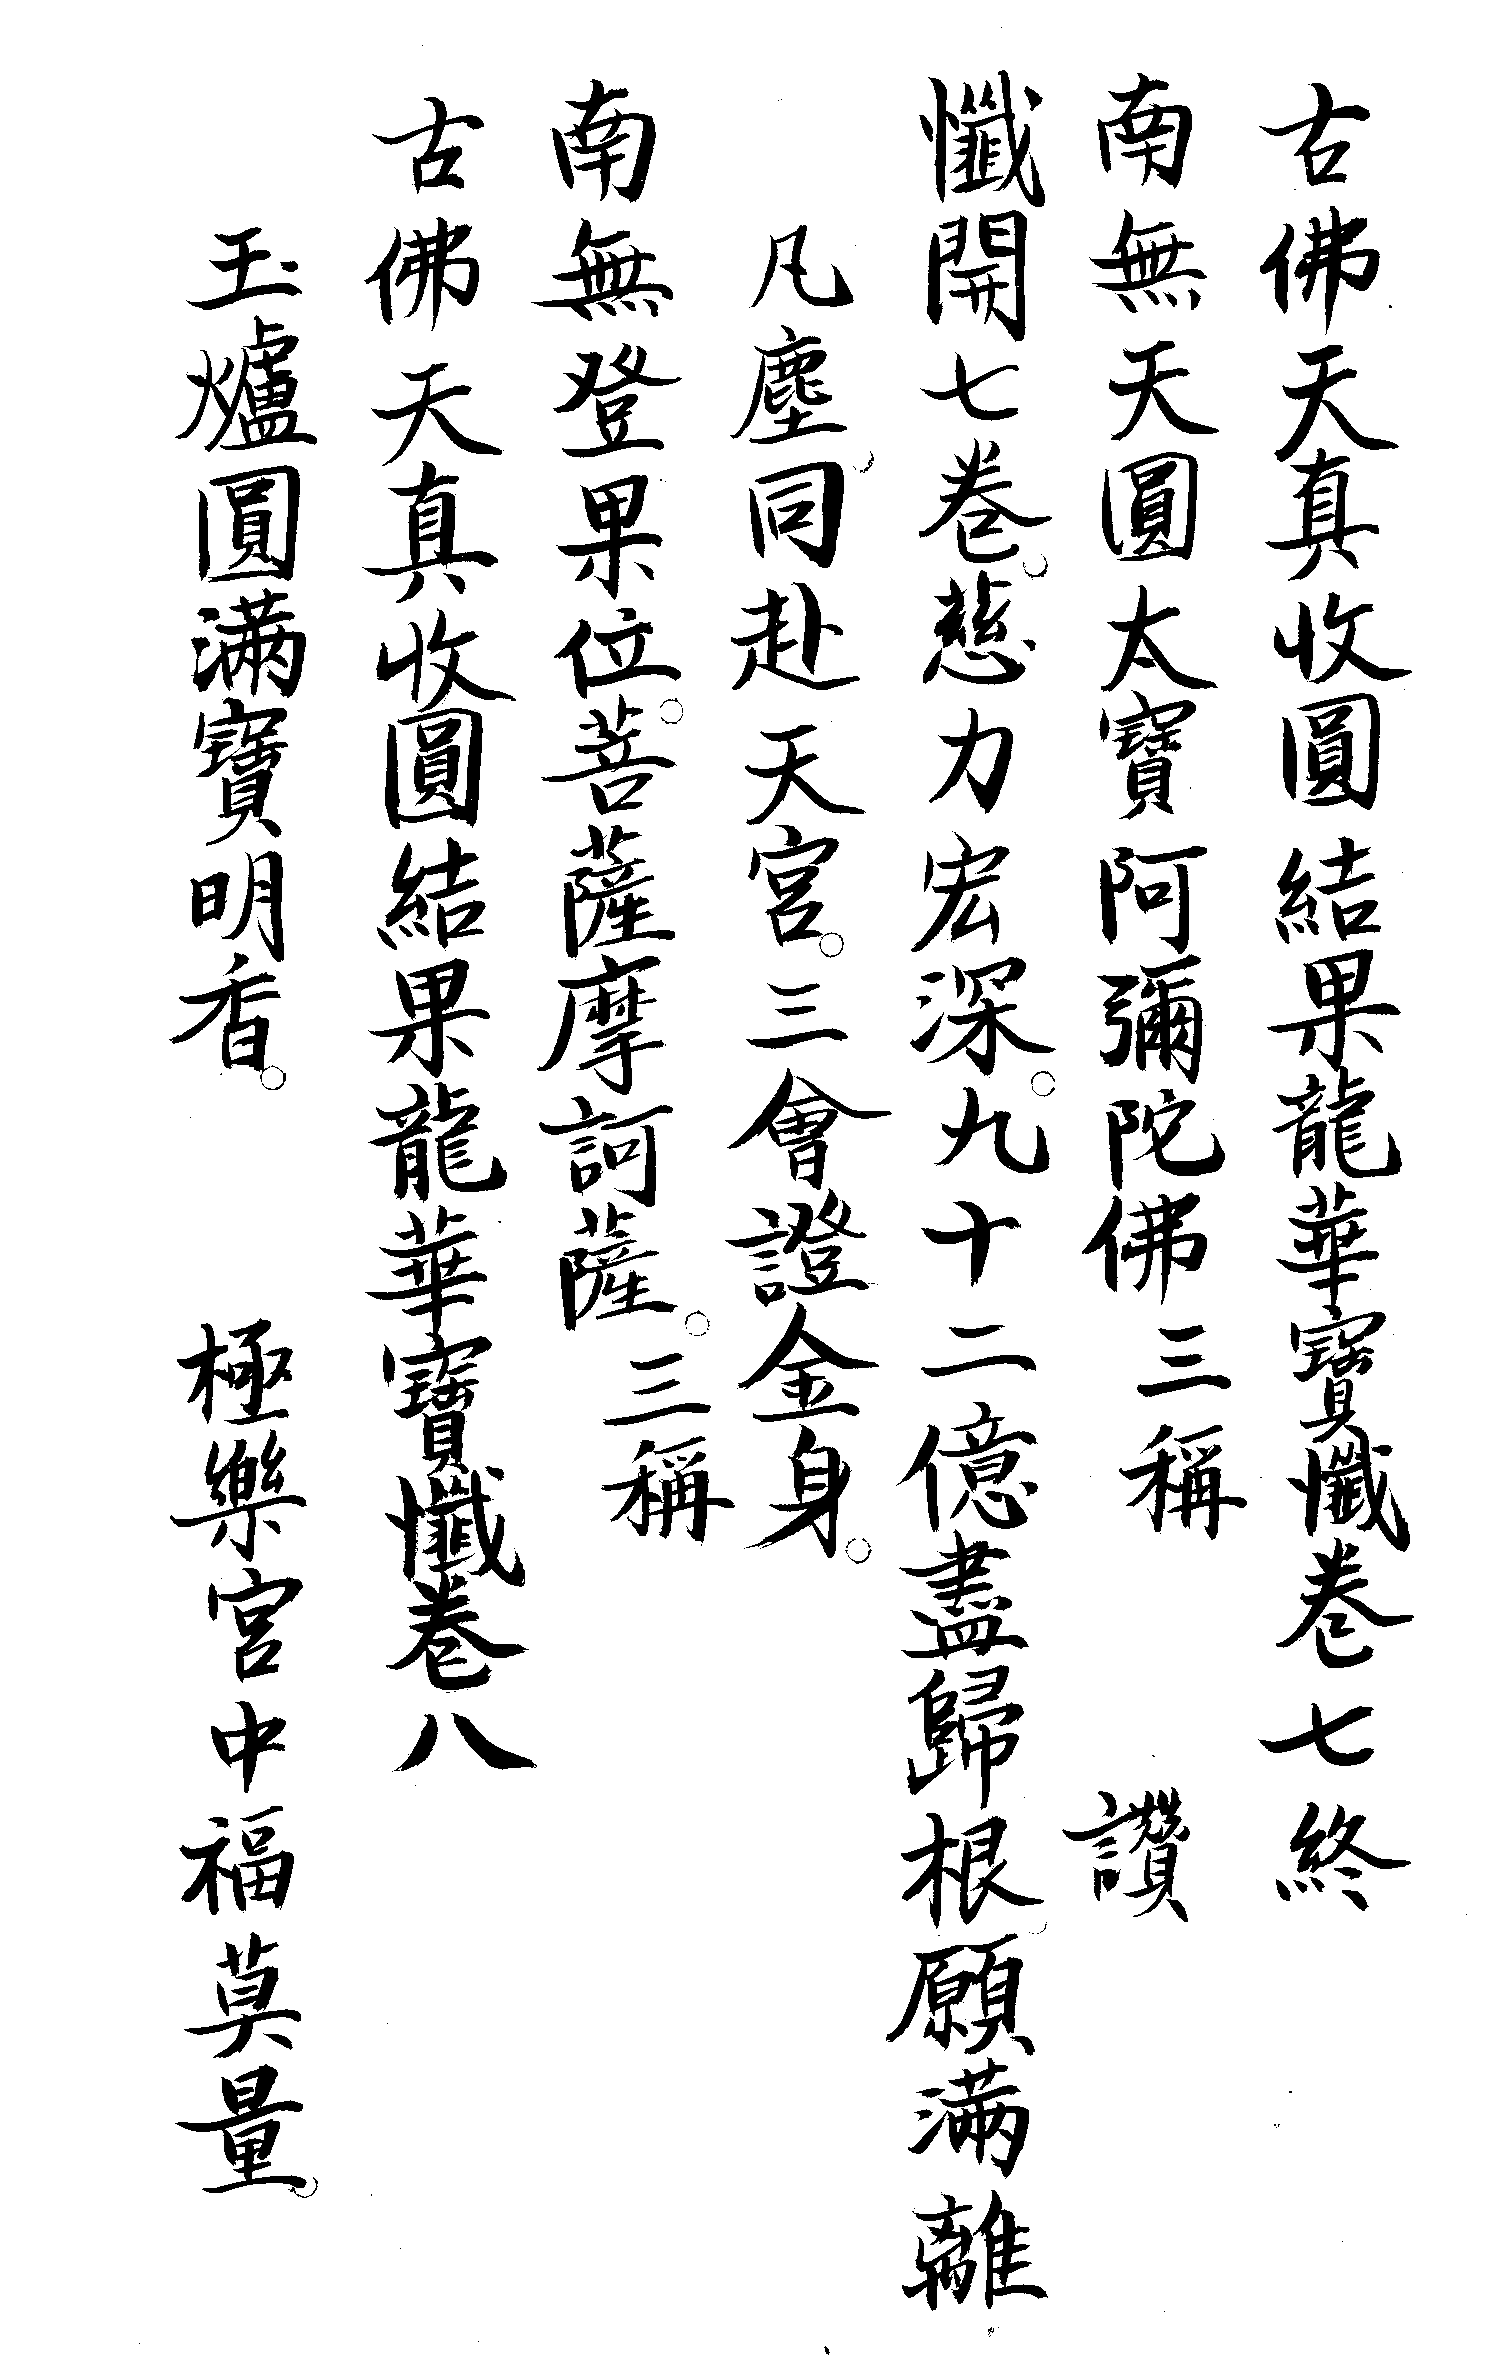 古佛天真收圓結果龍華寶懺卷七終
南無天圓太寶阿彌陀佛三稱 讚
懺開七卷。慈力宏深。九十二億盡歸根。願滿離
凡塵。同赴天宮。三會證金身。
南無登果位。菩薩摩訶薩。三稱
古佛天真收圓結果龍華寶懺卷八
玉爐圓滿寶明香。 極樂宮中福莫量。